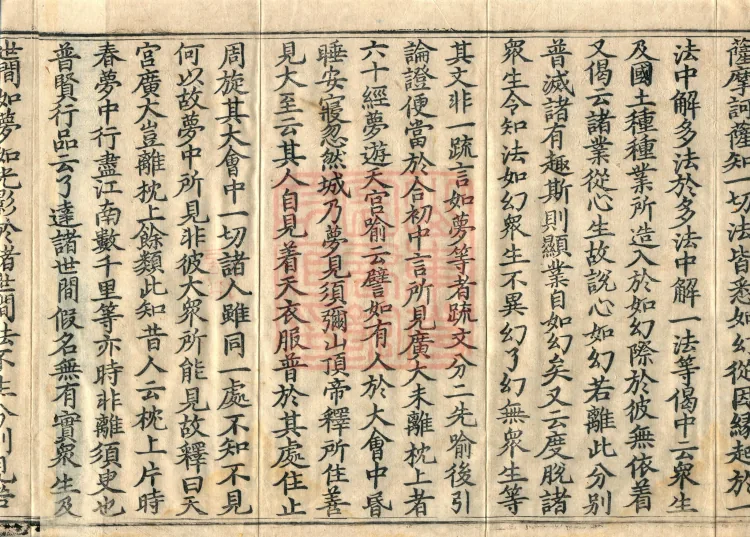 薩摩訶薩知一切法皆悉如幻從因緣起於一
法中解多法於多法中解一法等偈中云衆生
及國土種種業所造入於如幻際於彼無依着
又偈云諸業從心生故說心如幻若離此分別
普滅諸有趣斯則顯業自如幻矣又云度脫諸
衆生令知法如幻衆生不異幻了幻無衆生等
其文非一疏言如夢等者疏文分二先喻後引
論證便當於合初中言所見廣大未離枕上者
六十經夢遊天宮喻云譬如有人於大會中昏
睡安寢忽然城乃夢見須彌山頂帝釋所住善
見大至云其人自見着天衣服普於其處住止
周旋其大會中一切諸人雖同一處不知不見
何以故夢中所見非彼大衆所能見故釋曰天
宮廣大豈離枕上餘類此知昔人云枕上片時
春夢中行盡江南數千里等亦時非離須臾也
普賢行品云了達諸世間假名無有實衆生及
世間如夢如光影於諸世間法不生分別見善